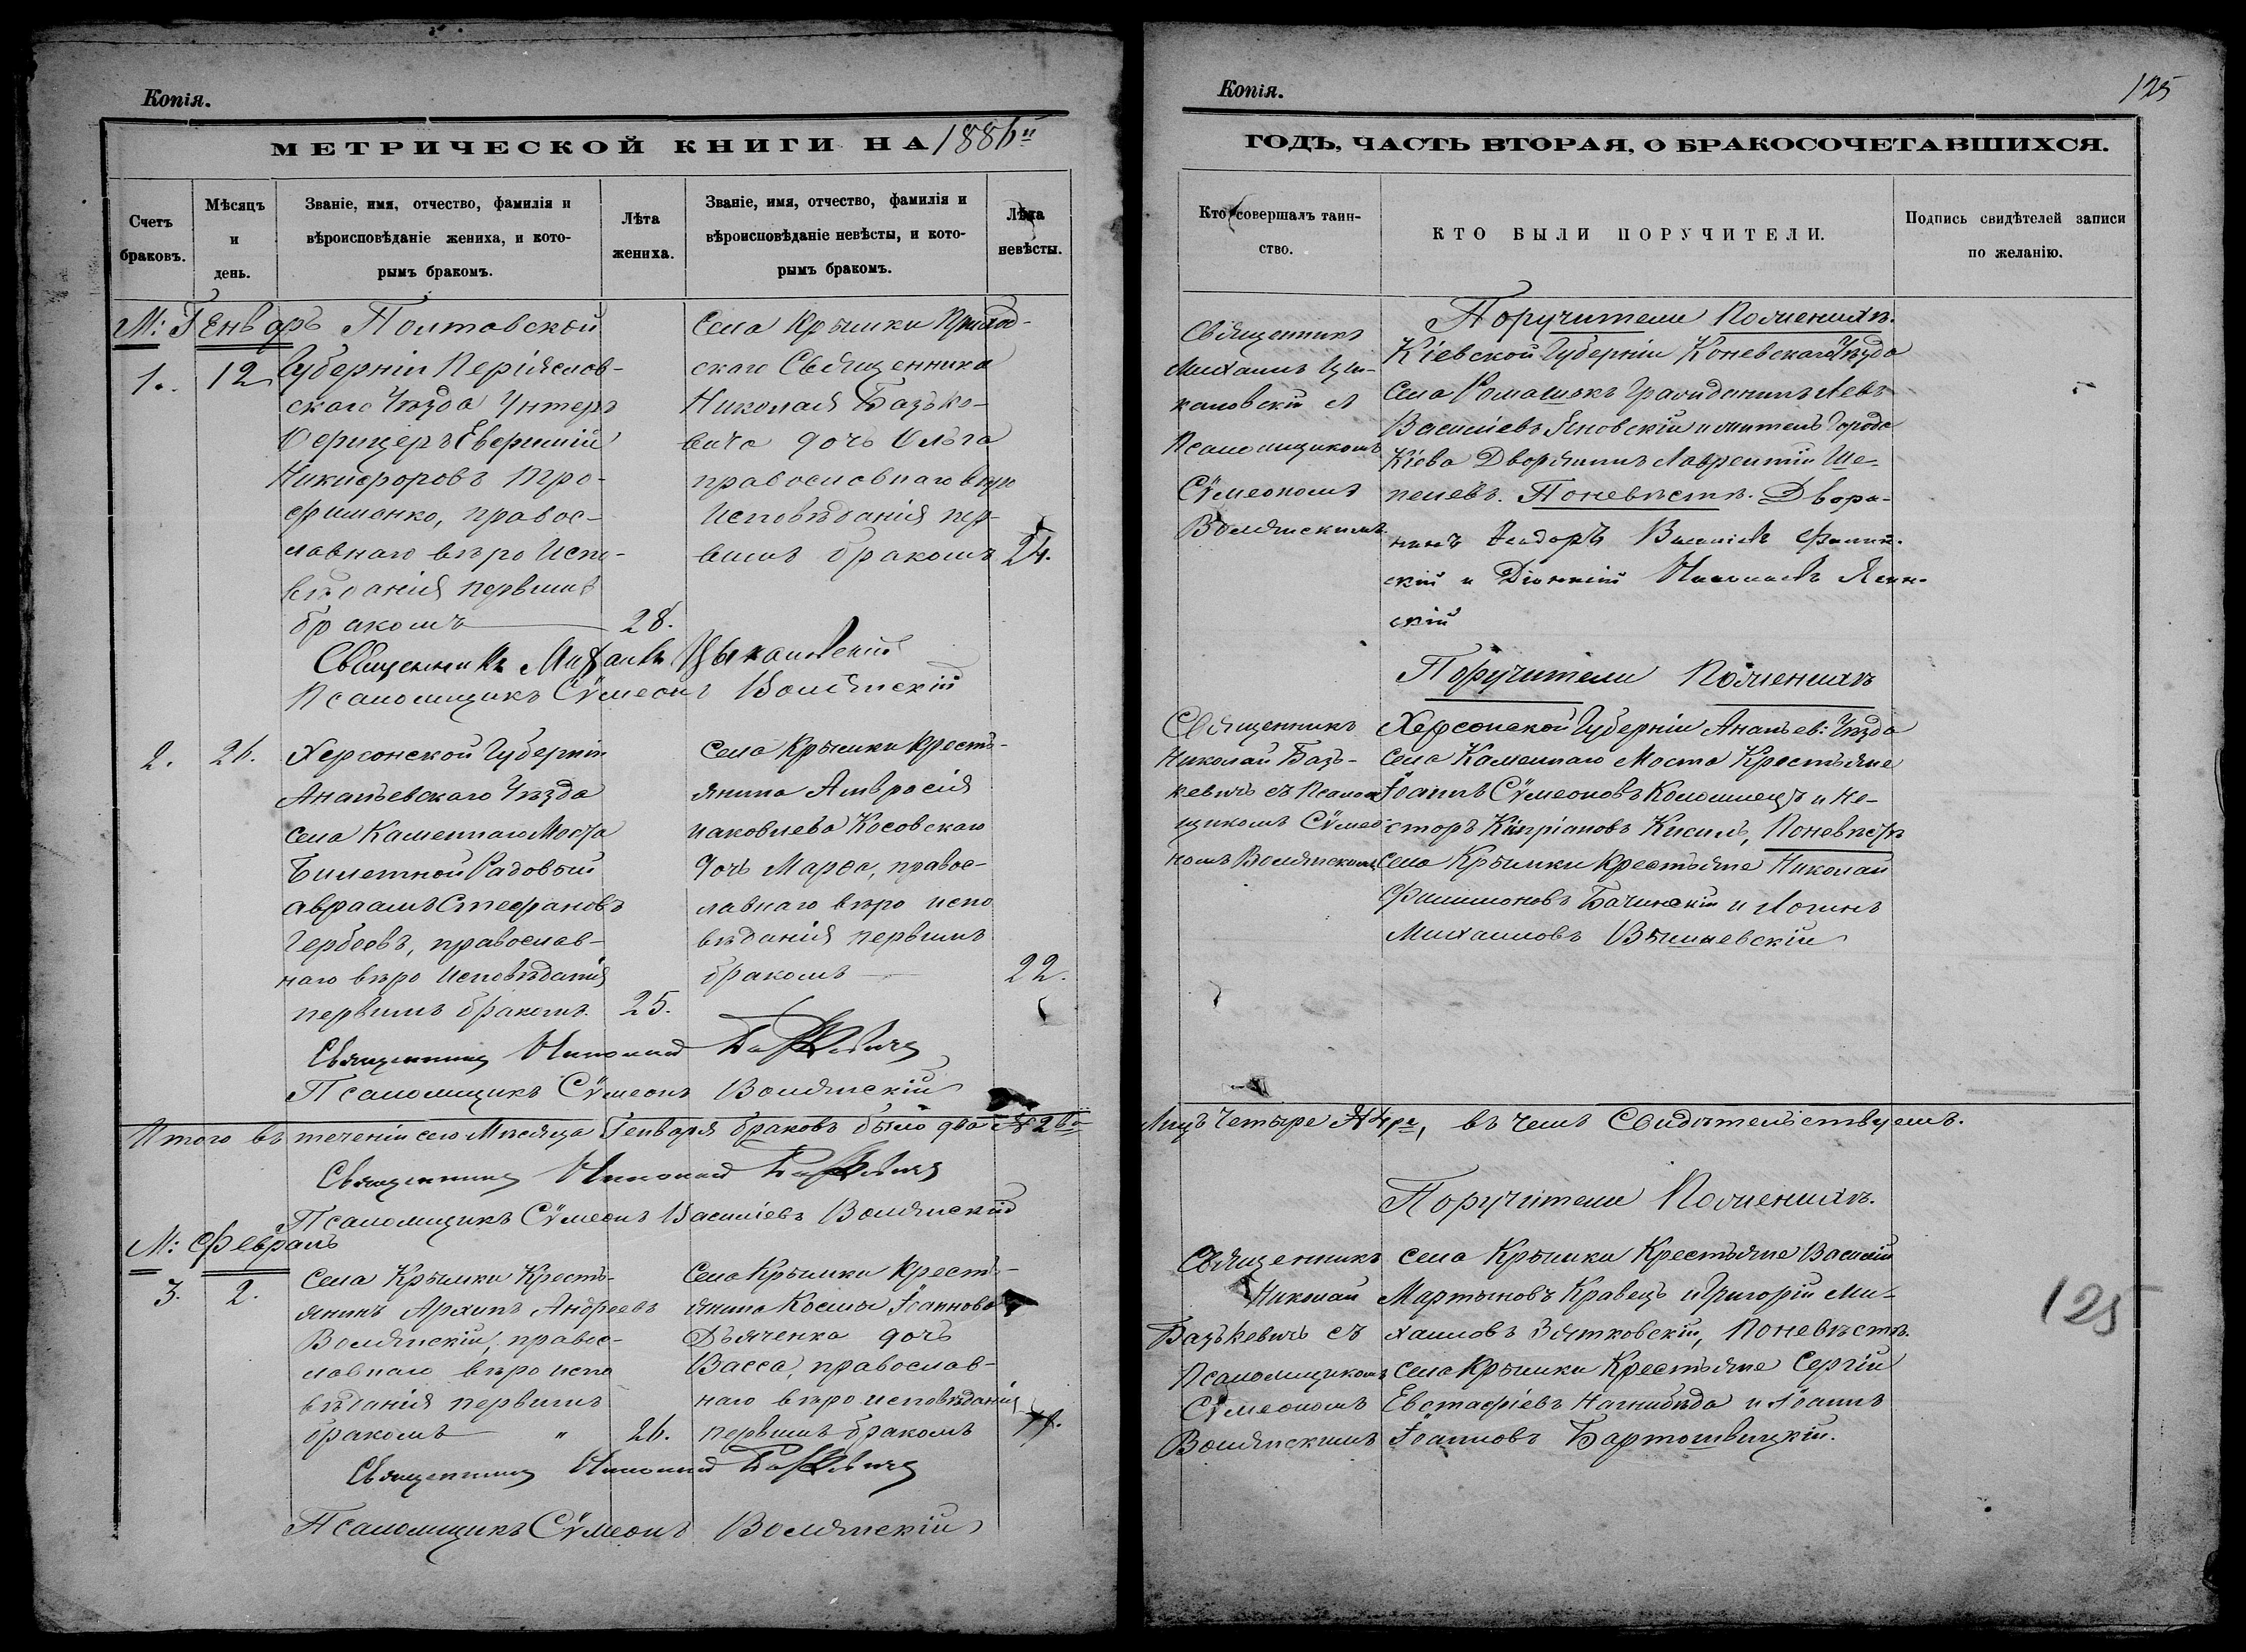 Копія.
МЕТРИЧЕСКОЙ КНИГИ НА 1886й
Счетъ браковъ.
Мѣсяцъ и день.
Званіе, имя, отчество, фамилія и
вѣроисповѣданіе жениха, и кото-
рымъ бракомъ.
Лѣта жениха.
Званіе, имя, отчество, фамилія и
вѣроисповѣданіе невѣсты, и кото-
рымъ бракомъ.
Лѣта невѣсты.
М: Генварь
1.
12
Полтавской
Губерніи Переяслов-
скаго Уѣзда Унтеръ
Офицеръ Евфимій
Никифоровъ Тро-
фименко, правос-
лавнаго вѣро Испо-
вѣданія первымъ
бракомъ
28.
Села Крымки Приход-
скаго Священника
Николая Базъке-
вича дочь Ольга
православнаго вѣро
Исповѣданія пер-
вымъ бракомъ
24.
Священникъ Михаилъ Цыкаловскій
Псаломщикъ Сѵмеонъ Волянскій
2.
26.
Херсонской Губерніи
Ананьевскаго Уѣзда
села Каменнаго Моста
Билетной Рядовый
Авраамъ Стефановъ
Гербеевъ, православ-
наго вѣро Исповѣданія
первымъ бракомъ.
25.
Села Крымки Кресть-
янина Амвросія
Іаковлева Косовскаго
дочь Марѳа, правос-
лавнаго вѣро испо
вѣданія первымъ
бракомъ
22.
Священникъ Николай Базькевичъ
Псаломщикъ Сѵмеонъ Волянскій
Итого въ теченіи сего Мѣсяца Генваря браковъ было два № 2ва
Священникъ Николай Базькевичъ
Псаломщикъ Сѵмеонъ Василіевъ Волянскій
М: Февраль
3.
2.
Села Крымки Кресть-
янинъ Архипъ Андреевъ
Волянскій, правос-
лавнаго вѣро испо
вѣданія первымъ
бракомъ "
26.
Села Крымки Кресть-
янина Космы Іоаннова
Дьяченка дочь
Васса, православ-
наго вѣро исповѣданія
первымъ бракомъ
Священникъ Николай Базькевичъ
Псаломщикъ Сѵмеонъ Волянскій
Копія.
125
ГОДЪ, ЧАСТЬ ВТОРАЯ, О БРАКОСОЧЕТАВШИХСЯ.
Кто совершалъ таин-
ство.
КТО БЫЛИ ПОРУЧИТЕЛИ.
Подпись свидѣтелей записи
по желанію.
Священникъ
Михаилъ Цы-
каловскій съ
Псаломщикомъ
Сѵмеономъ
Волянскимъ
Поручители Поженихѣ.
Кіевской Губерніи Каневскаго Уѣзда
Села Ромашокъ Гражданинъ Левъ
Василіевъ Яновскій и житель Города
Кіева Дворянинъ Лаврентій Ше-
пелевъ. Поневѣстѣ. Дворя-
нинъ Ѳеодоръ
скій и Діонисій
скій
Поручители Поженихѣ
Священникъ
Николай Базъ-
кевичъ съ Псалом
щикомъ Сѵмео
номъ Волянскимъ
Херсонской Губерніи Ананьев: Уѣзда
села Каменнаго Моста Крестьяне
Іоаннъ Сѵмеоновъ Коломіецъ и Не-
сторъ Кипріановъ Кисиль, Поневѣстѣ
села Крымки Крестьяне Николай
Филимоновъ Бачинскій и Логинъ
Михаиловъ Вышневскій
Лицъ четыре № 4ре, въ чемъ Свидѣтельствуемъ.
Поручители Поженихѣ.
Священникъ
Николай
Базъкевичъ съ
Псаломщикомъ
Сѵмеономъ
Волянскимъ
села Крымки Крестьяне Василій
Мартыновъ Кравецъ и Григорій Ми-
хаиловъ Зятковскій, Поневѣстѣ.
села Крымки Крестьяне Сергій
Евстафіевъ Нагнибѣда и Іоаннъ
Іоанновъ Бартошвицкій.
125